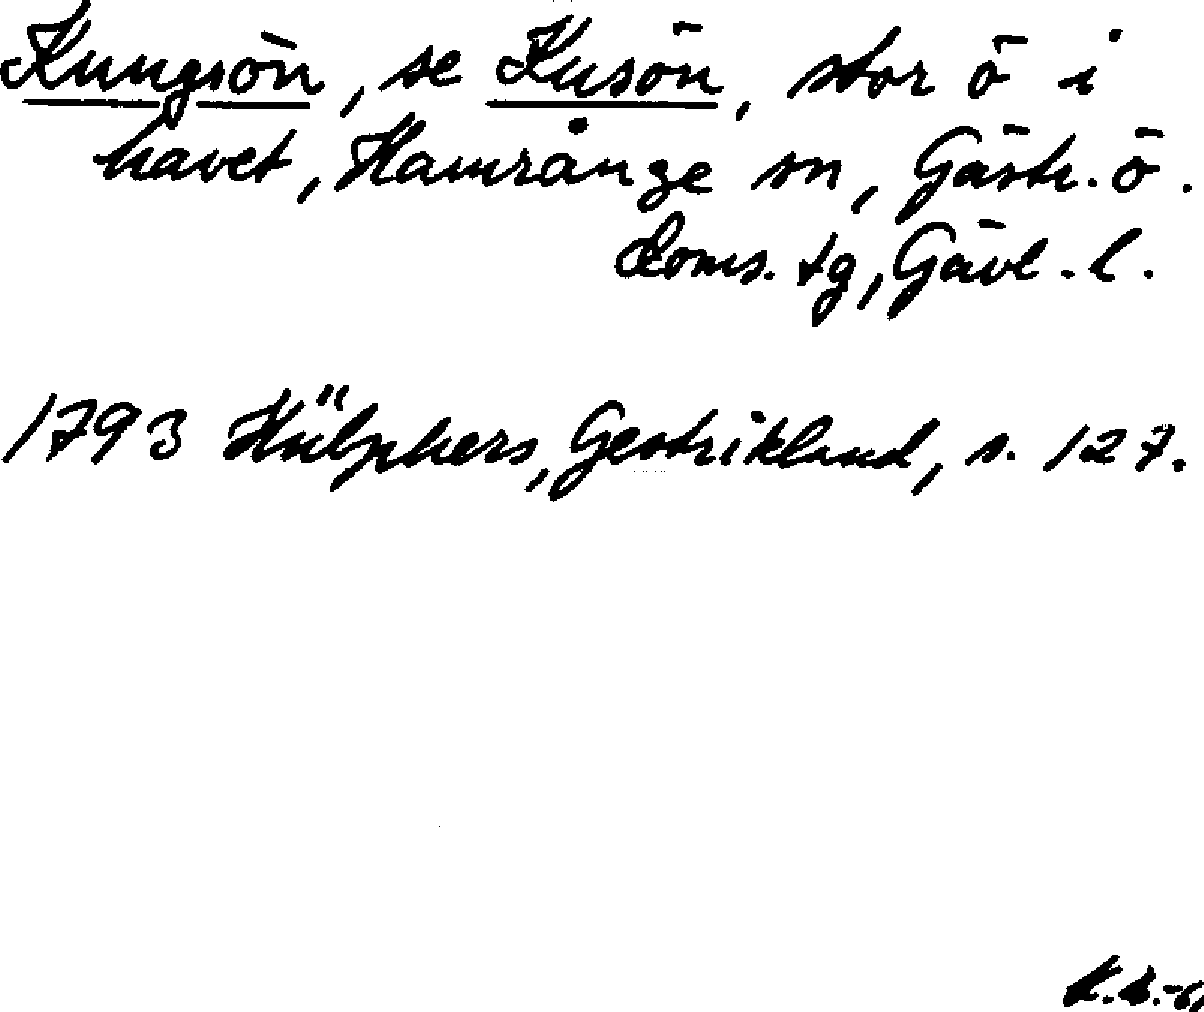 Kungsön, se Kusön, stor ö i
havet, Hamrånge sn, Gästr. ö.
doms. tg, Gävl. l.
1793 Hülphers, Gestrikland, s. 127.